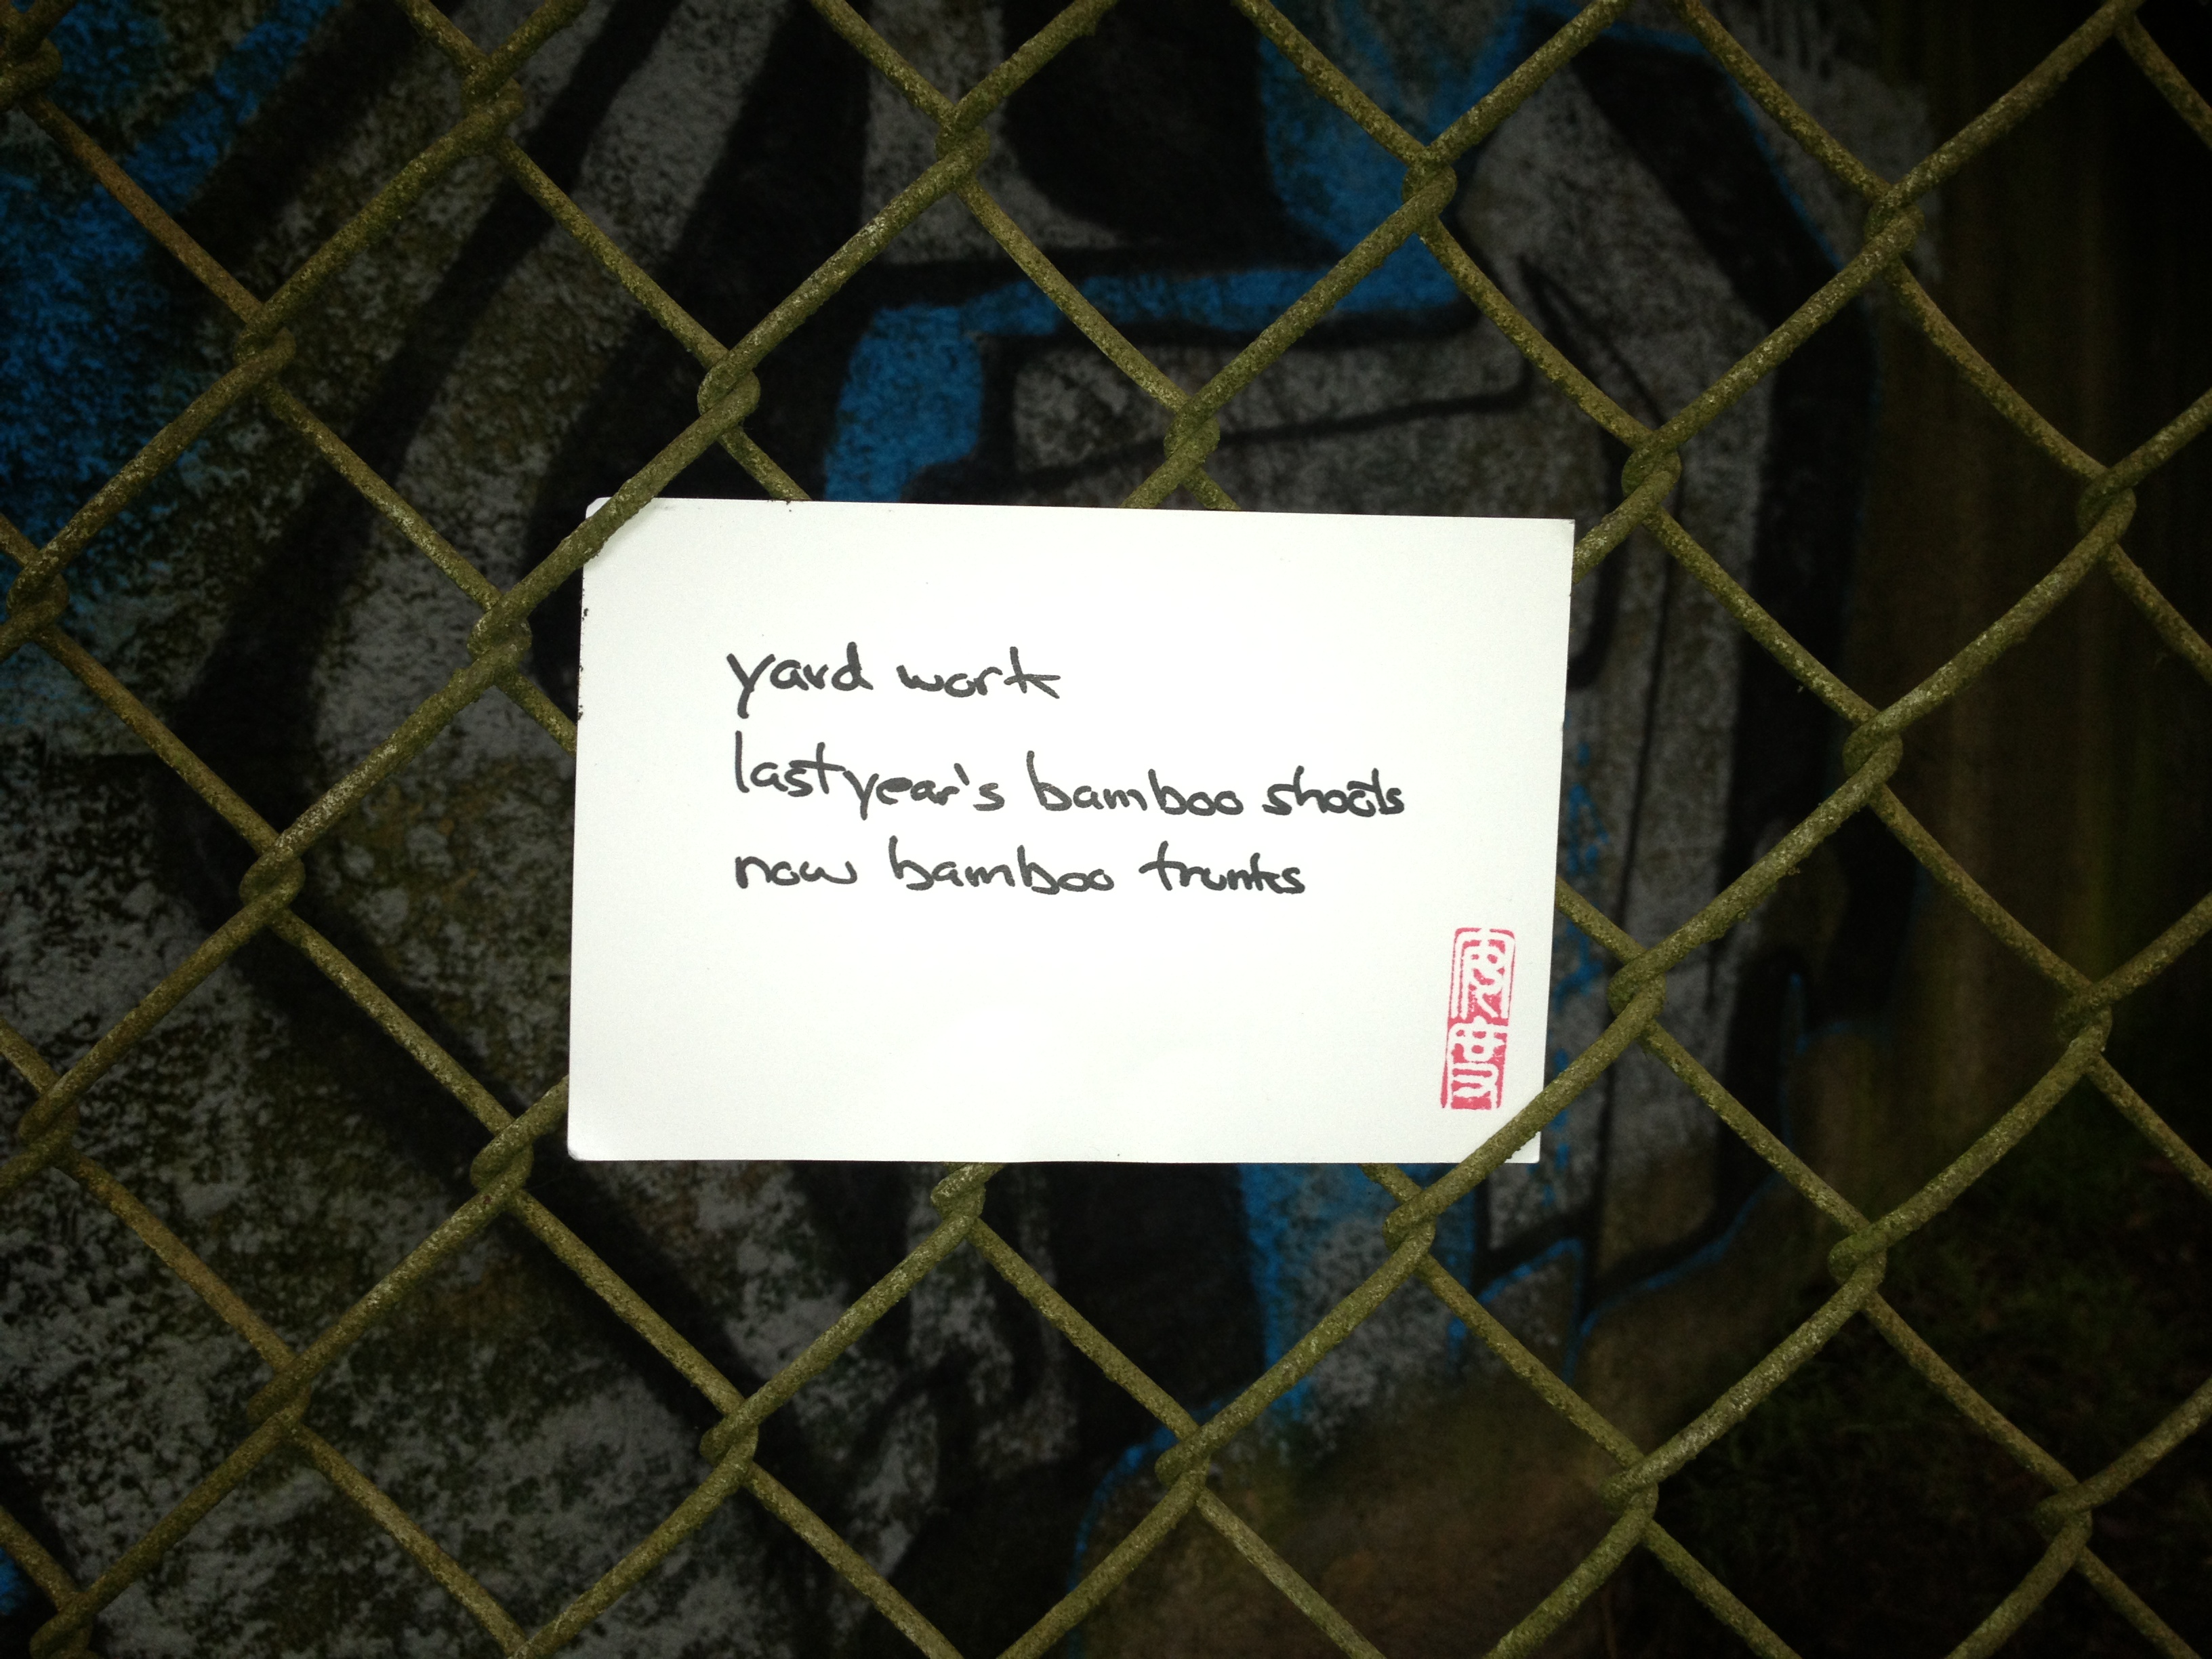 yard work
last year's bamboo shoots
now bamboo trunks